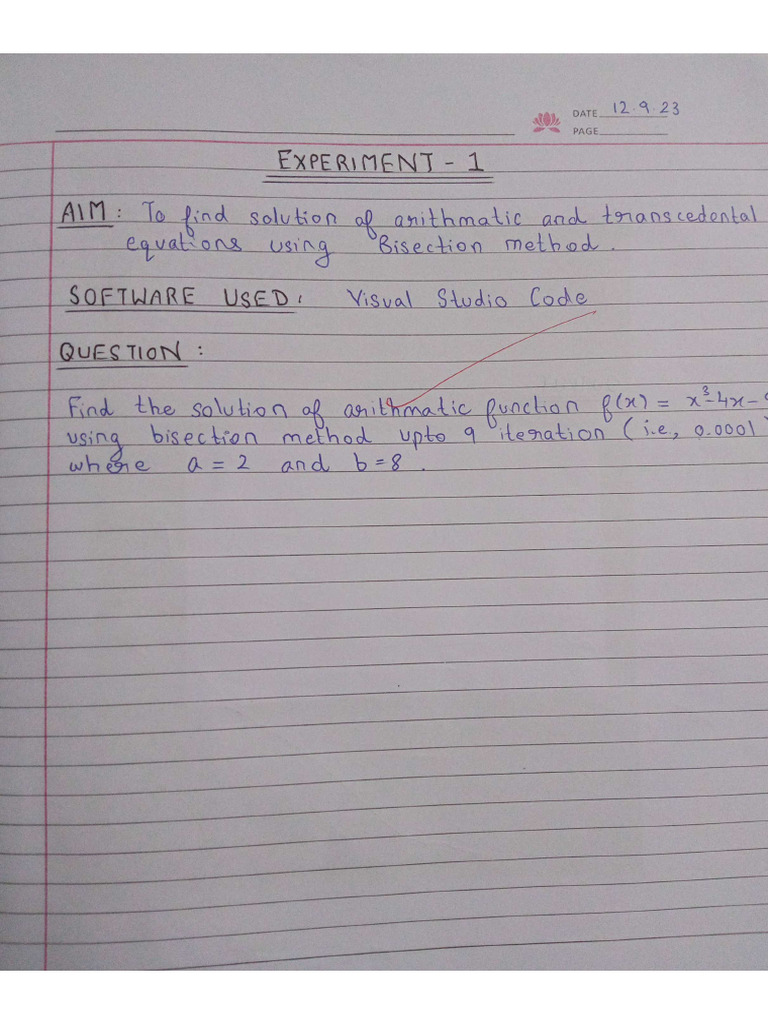 DATE 12.9.23
PAGE
EXPERIMENT - 1
AIM : To find solution of arithmatic and transcedental
equations using Bisection method.
SOFTWARE USED: Visual Studio Code
QUESTION :
Find the solution of arithmatic function f(x) = x³-4x-
using bisection method upto 9 iteration (i.e, 0.0001
where a = 2 and b = 8 .